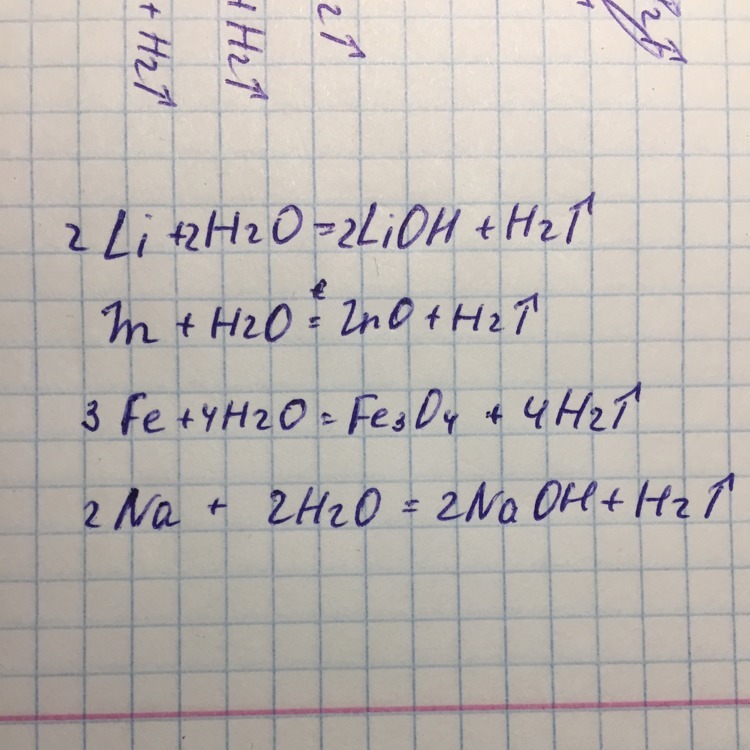 + H2↑
+ H2↑
2↑
2↑
2Li + 2H2O = 2LiOH + H2↑
Zn + H2O =ᵗ ZnO + H2↑
3Fe + 4H2O = Fe3O4 + 4H2↑
2Na + 2H2O = 2NaOH + H2↑